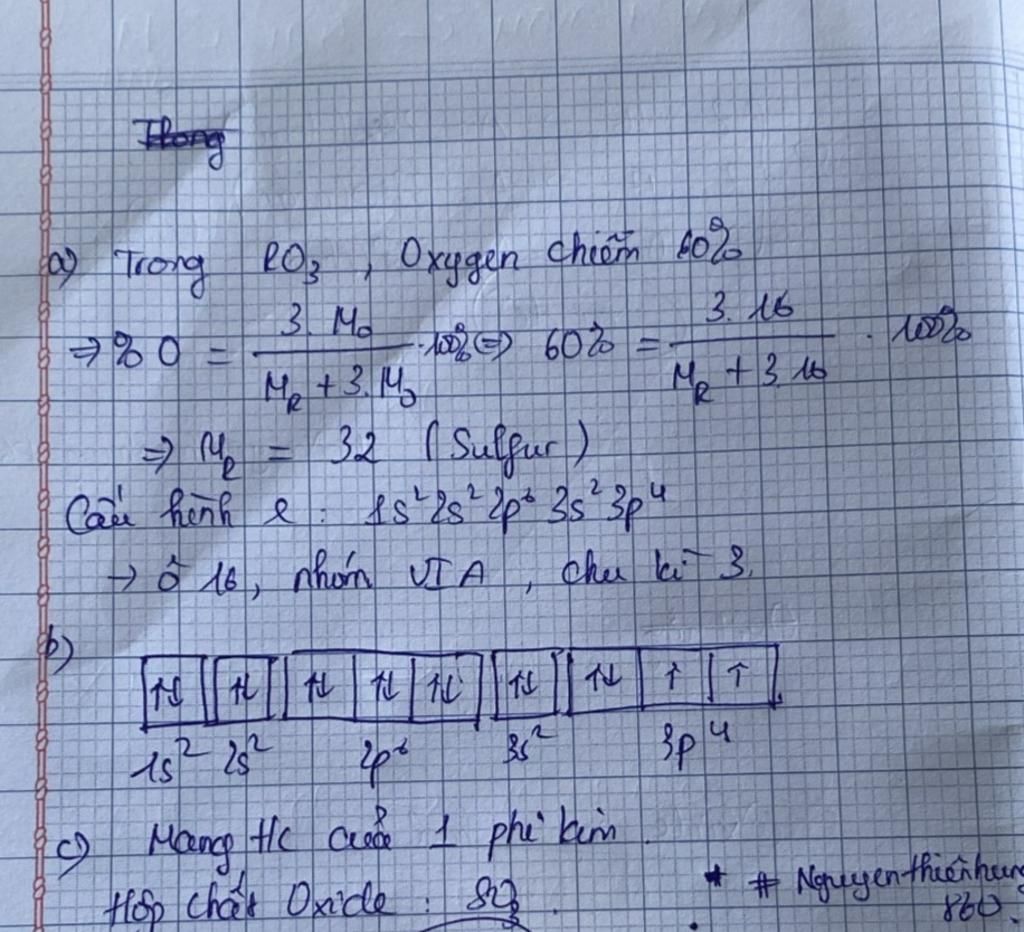 Trong
a) Trong RO₃, Oxygen chiếm 60%
⇒ % O = (3. M₀)/(M_R + 3. M₀) · 100% ⇔ 60% = (3. 16)/(M_R + 3. 16) · 100%
⇒ M_R = 32 (Sulfur)
Cấu hình e : 1s² 2s² 2p⁶ 3s² 3p⁴
→ ô 16, nhóm VI A, chu kì 3.
b)
↑↓ ↑↓ ↑↓ ↑↓ ↑↓ ↑↓ ↑↓ ↑ ↑
1s² 2s² 2p⁶ 3s² 3p⁴
c) Mang t/c của 1 phi kim.
Hợp chất Oxide : SO₃.
* # Nguyenthiênhung
860.